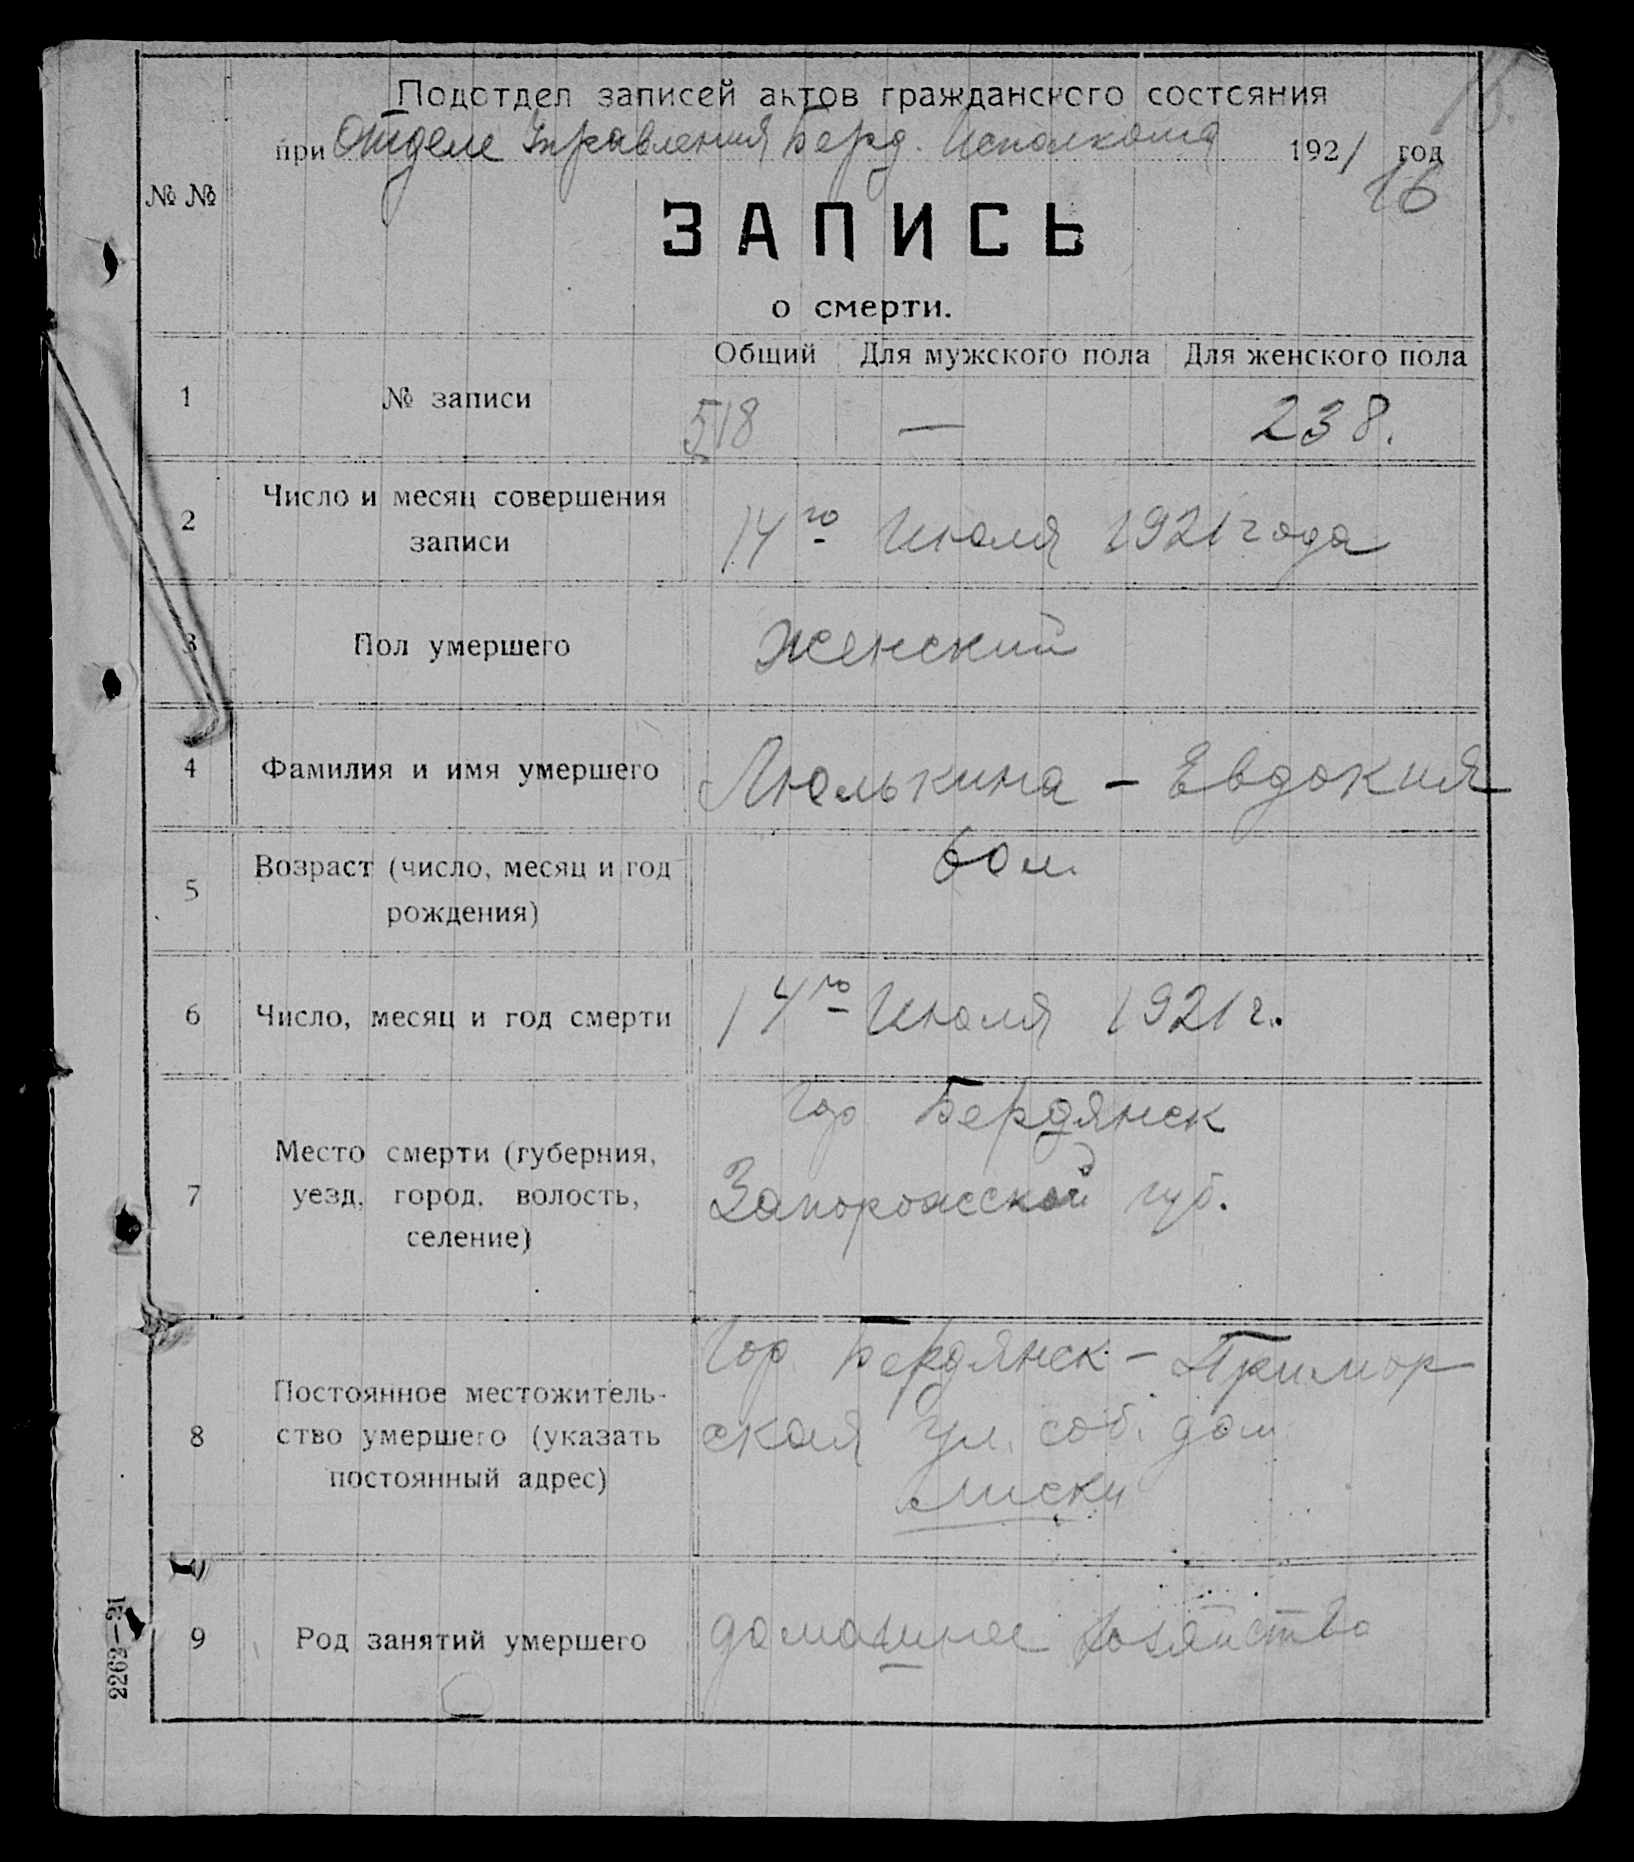 Подотдел записей актов гражданского состояния
при Отделе Управления Берд. Исполкома 1921 год
16
№ №
ЗАПИСЬ
о смерти.
Общий Для мужского пола Для женского пола
1 № записи 518 — 238.
2 Число и месяц совершения записи 14го Июля 1921 года
3 Пол умершего Женский
4 Фамилия и имя умершего Люлькина - Евдокия
5 Возраст (число, месяц и год рождения) 60 л.
6 Число, месяц и год смерти 14го Июля 1921 г.
7 Место смерти (губерния, уезд, город, волость, селение)
Гор. Бердянск
Запорожской губ.
8 Постоянное местожитель-
ство умершего (указать
постоянный адрес)
Гор. Бердянск - Примор
ская ул. соб. дом
Лиски
9 Род занятий умершего домашнее хозяйство
2262—21